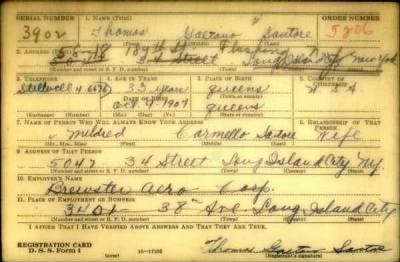 SERIAL NUMBER 1. NAME (Print) ORDER NUMBER
3902 Thomas Gaetano Santore 5206
(First) (Middle) (Last)
109th St. Flushing
2. ADDRESS (Print)
34 Street Long Island City New York
(Number and street or R. F. D. number) (Town) (County) (State)
3. TELEPHONE 4. AGE IN YEARS 5. PLACE OF BIRTH 6. COUNTRY OF CITIZENSHIP
Stillwell 4 33 years queens U S A
DATE OF BIRTH
Oct 9 1907 queens
(Exchange) (Number) (Mo.) (Day) (Yr.) (State or country)
7. NAME OF PERSON WHO WILL ALWAYS KNOW YOUR ADDRESS 8. RELATIONSHIP OF THAT PERSON
Mildred Carmello Wife
(Mr., Mrs., Miss) (First) (Middle) (Last)
9. ADDRESS OF THAT PERSON
5042 34 Street Long Island City Ny.
(Number and street or R. F. D. number) (Town) (County) (State)
10. EMPLOYER'S NAME
Brewster Aero Corp.
11. PLACE OF EMPLOYMENT OR BUSINESS
38th Ave. Long Island City
(Number and street or R. F. D. number) (Town) (County) (State)
I AFFIRM THAT I HAVE VERIFIED ABOVE ANSWERS AND THAT THEY ARE TRUE.
REGISTRATION CARD
D. S. S. Form 1 (over) 16—17105 Thomas Gaetano Santore
(Registrant's signature)